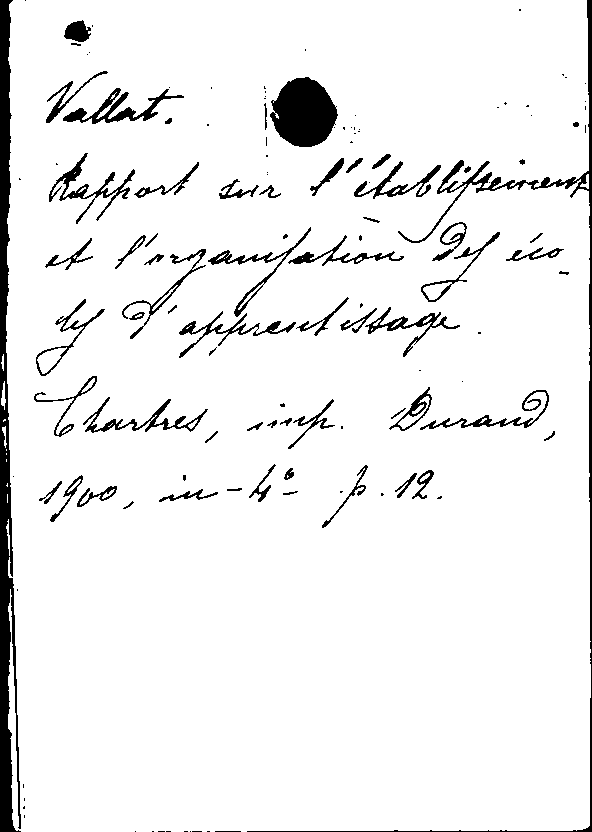 Vallat.
Rapport sur l'établissement
et l'organisation des éco-
les d'apprentissage.
Chartres, imp. Durand,
1900, in-4º p. 12.